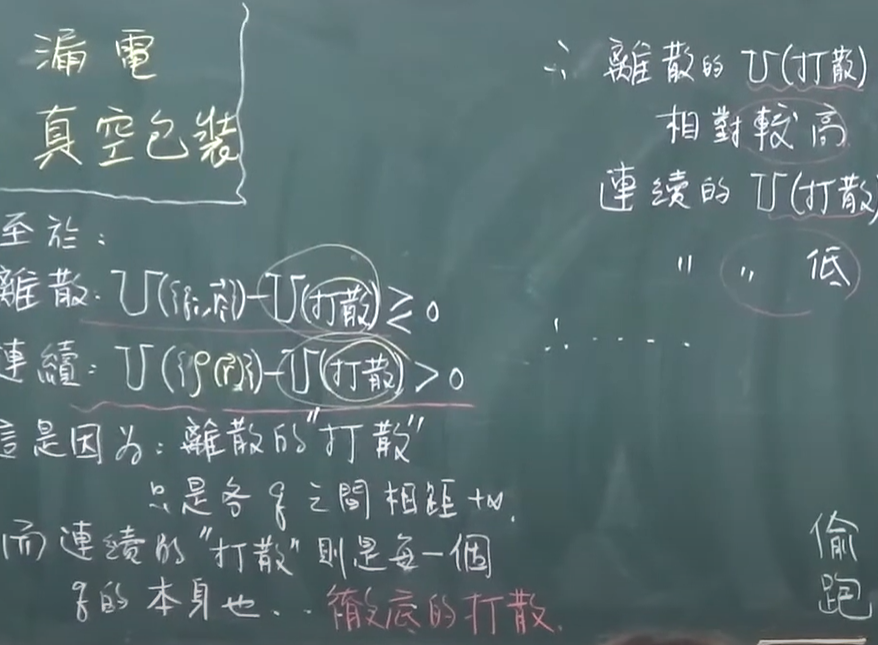 漏電
真空包裝
至於：
離散：U({qᵢ, r⃗ᵢ})-U(打散)≥0
連續：U({ρ(r⃗)})-U(打散)>0
這是因為：離散的"打散"
只是各q之間相距+∞.
而連續的"打散"則是每一個
q的本身也... 徹底的打散.
∴ 離散的 U(打散)
相對較高
連續的 U(打散)
" " 低
偷
跑